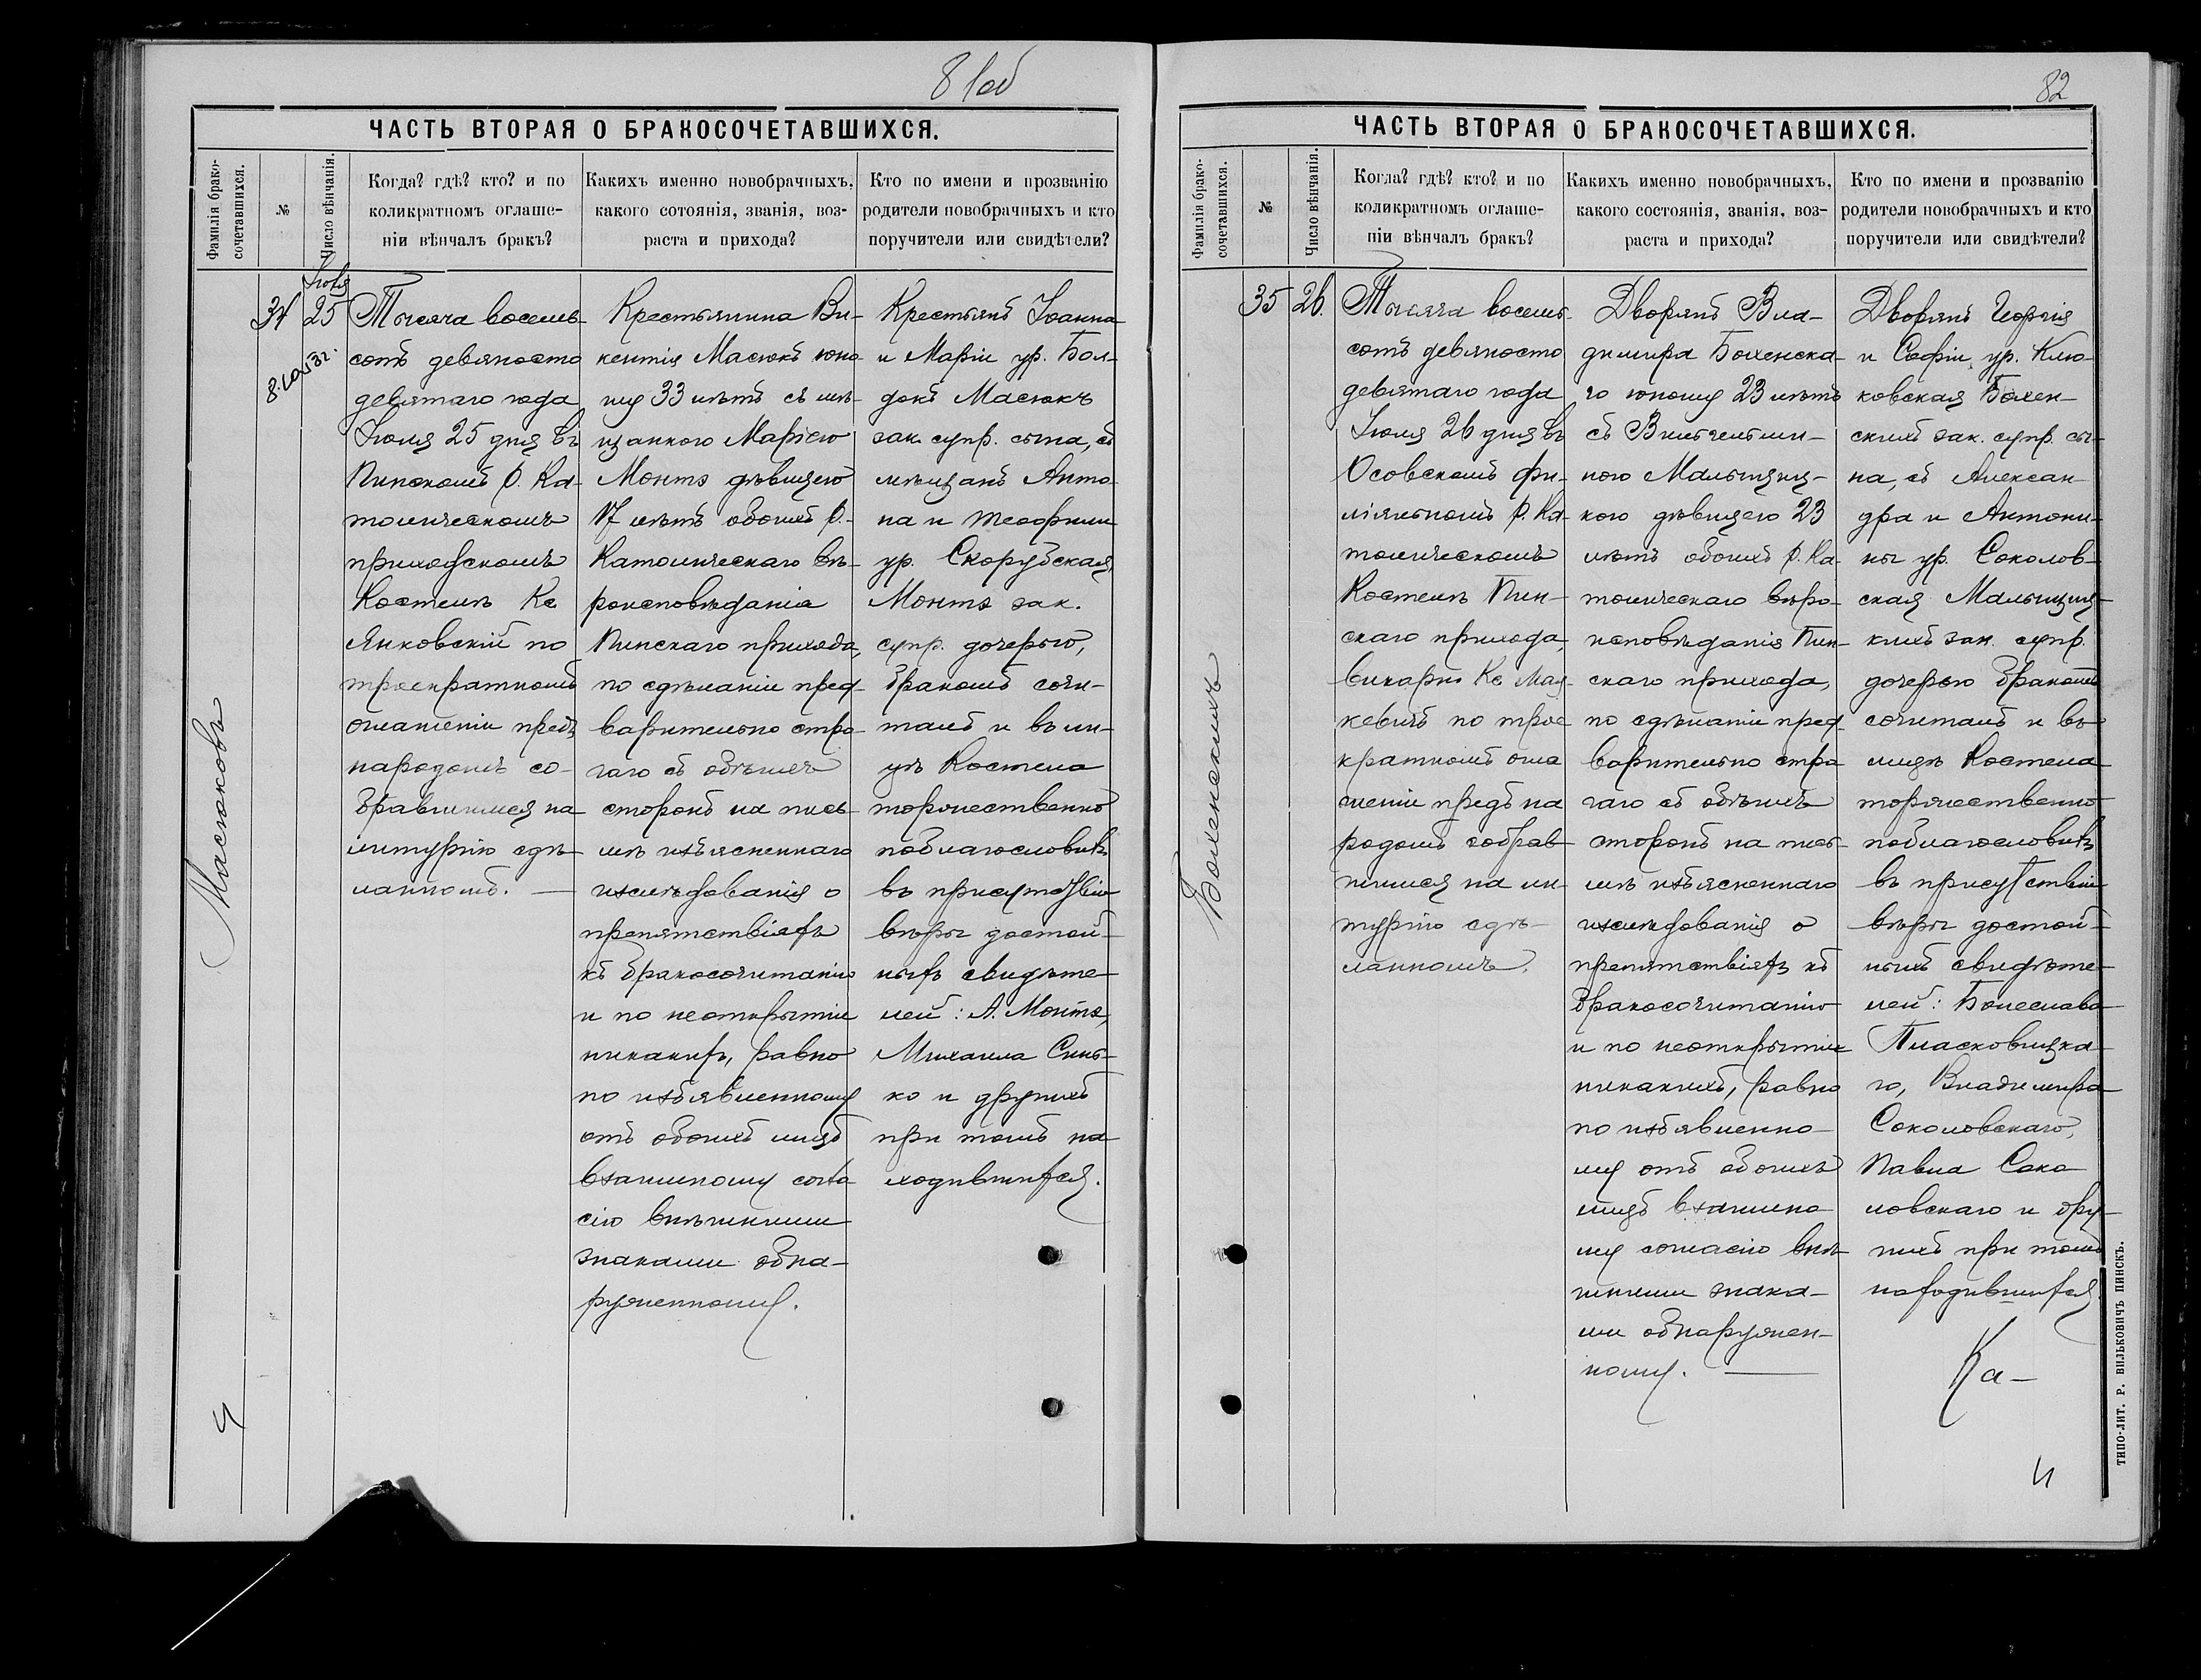 81об
ЧАСТЬ ВТОРАЯ О БРАКОСОЧЕТАВШИХСЯ.
Фамилія брако-
сочетавшихся.
№
Число вѣнчанія.
Когда? гдѣ? кто? и по
коликратномъ оглаше-
ніи вѣнчалъ бракъ?
Какихъ именно новобрачныхъ,
какого сотоянія, званія, воз-
раста и прихода?
Кто по имени и прозванію
родители новобрачныхъ и кто
поручители или свидѣтели?
Масюковъ
34
Іюля
25
Тысяча восемь-
сотъ девяносто
девятаго года
Іюля 25 дня въ
Пинскомъ Р. Ка-
толическомъ
приходскомъ
Костелѣ Кс
Янковскій по
троекратномъ
оглашеніи предъ
народомъ со-
бравшимся на
литургію сдѣ-
ланномъ.
Крестьянина Ви-
кентія Масюкъ юно-
шу 33 лѣтъ съ мѣ-
щанкою Маріею
Монтэ дѣвицею
17 лѣтъ обоихъ Р.-
Католическаго вѣ-
роисповѣданія
Пинскаго прихода,
по сдѣланіи пред-
варительно стро-
гаго съ обѣихъ
сторонъ на пись-
мѣ изъясненнаго
изслѣдованія о
препятствіяхъ
къ бракосочитанію
и по неоткрытіи
никакихъ, равно
по изъявленному
отъ обоихъ лицъ
взаимному согла-
сію внѣшними
знаками обна-
руженному.
Крестьянъ Іоанна
и Маріи ур. Бол-
докъ Масюкъ
зак. супр. сына, съ
мѣщанъ Анто-
на и Теофили
ур. Скорубская
Монтэ зак.
супр. дочерью,
бракомъ сочи-
талъ и въ ли-
цѣ Костела
торжественно
поблагословилъ
въ присутствіи
вѣры достой-
ныхъ свидѣте-
лей: А. Монтэ,
Михаила Синь-
ко и другихъ
при томъ на-
ходившихся.
82
ЧАСТЬ ВТОРАЯ О БРАКОСОЧЕТАВШИХСЯ.
Фамилія брако-
сочетавшихся.
№
Число вѣнчанія.
Когда? гдѣ? кто? и по
коликратномъ оглаше-
ніи вѣнчалъ бракъ?
Какихъ именно новобрачныхъ,
какого состоянія, званія, воз-
раста и прихода?
Кто по имени и прозванію
родители новобрачныхъ и кто
поручители или свидѣтели?
Боженскихъ
35
26.
Тысяча восемь-
сотъ девяносто
девятаго года
Іюля 26 дня въ
Осовскомъ фи-
ліяльномъ Р. Ка-
толическомъ
Костелѣ Пин-
скаго прихода,
викарій Кс Мац-
кевичъ по трое-
кратномъ огла
шеніи предъ на
родомъ собрав
шимся на ли-
тургію сдѣ-
ланномъ.
Дворянъ Вла-
димира Боженска-
го юношу 23 лѣтъ
съ Вильгельми-
ною Мальчиц-
кою дѣвицею 23
лѣтъ обоихъ Р. Ка-
толическаго вѣро-
исповѣданія Пин-
скаго прихода,
по сдѣланіи пред-
варительно стро
гаго съ обѣихъ
сторонъ на пись-
мѣ изъясненнаго
изслѣдованія о
препятствіяхъ къ
бракосочитанію
и по неоткрытіи
никакихъ, равно
по изъявленно-
му отъ обоихъ
лицъ взаимно
му согласію внѣ-
шними знака-
ми обнаружен-
ному.
Дворянъ Георгія
и Софіи ур. Клю-
ковская Божен-
скихъ зак. супр. сы-
на, съ Алексан-
дра и Антони-
ны ур. Соколов-
ская Мальчиц-
кихъ зак. супр.
дочерью бракомъ
сочиталъ и въ
лицѣ Костела
торжественно
поблагословилъ
въ присутствіи
вѣры достой-
ныхъ свидѣте-
лей: Болеслава
Пласковицка-
го, Владимира
Соколовскаго,
Павла Соко
ловскаго и дру-
гихъ при томъ
находившихся
Ка-
ТИПО-ЛИТ. Р. ВИЛЬКОВИЧЪ ПИНСКЪ.